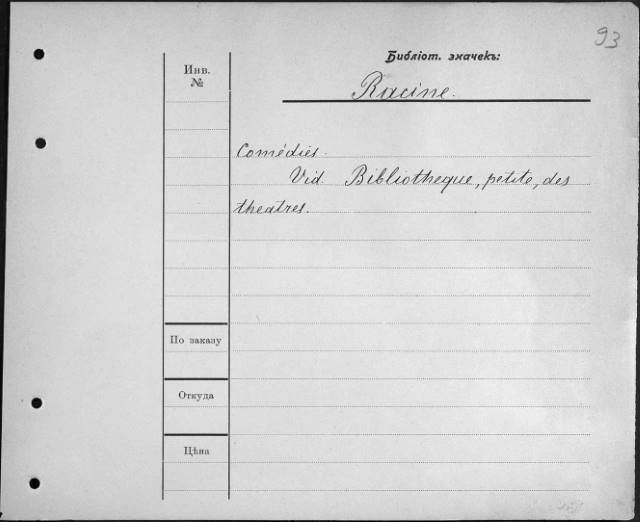 93
Библіот. значекъ:
Инв.
№
Racine.
Comédies.
Vid. Bibliotheque, petite, des
theatres.
По заказу
Откуда
Цѣна